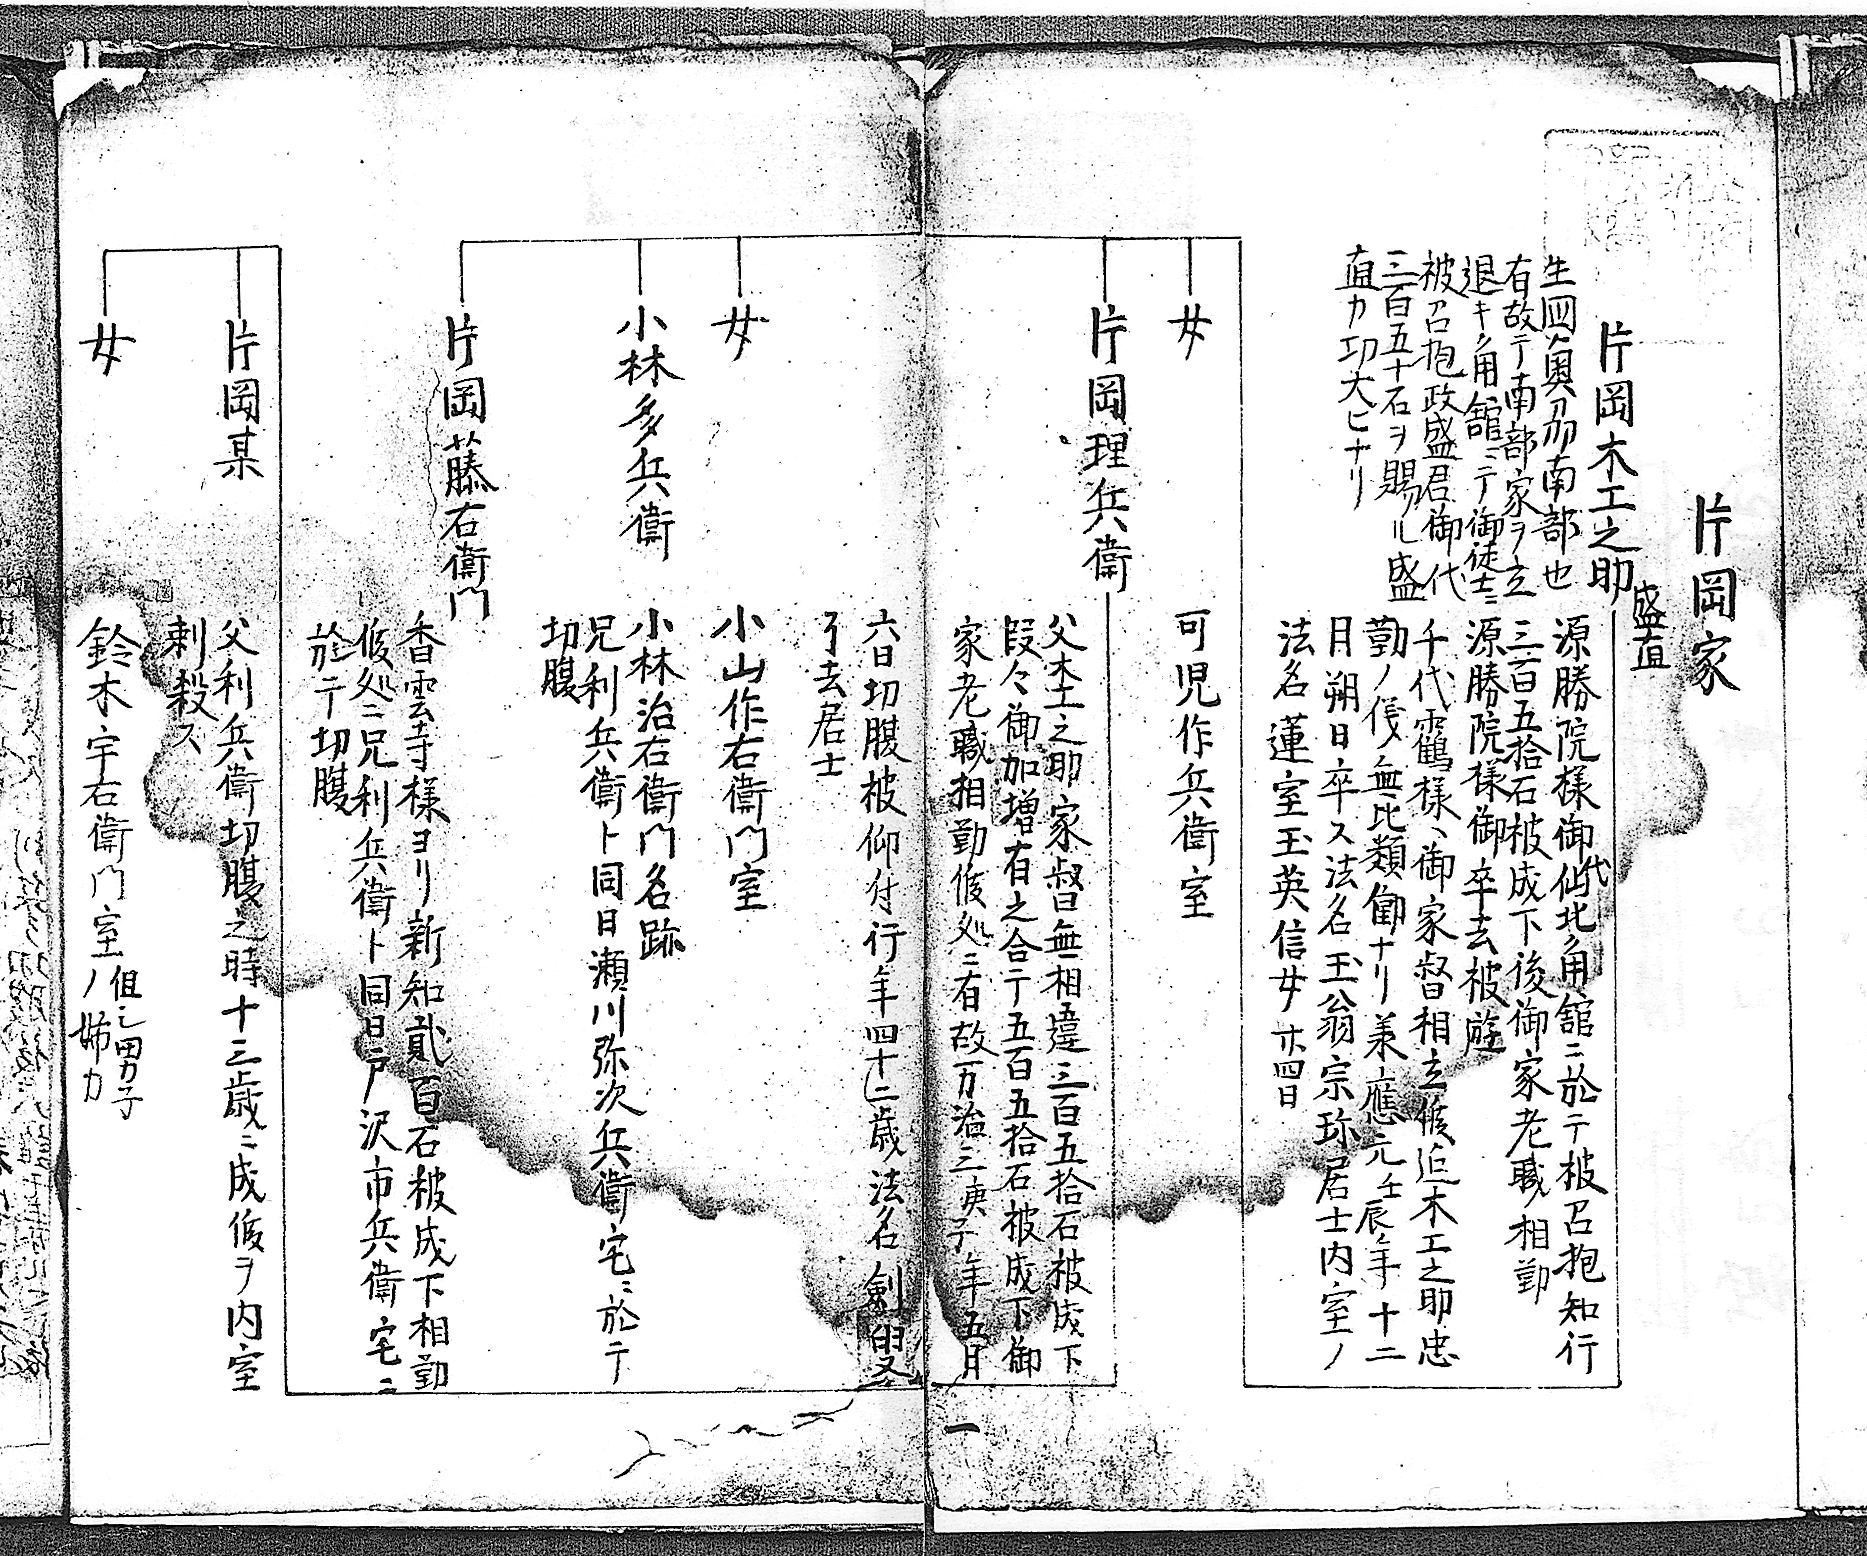 片岡家
片岡木工之助 盛直
生国ハ奥刕南部也
有故テ南部家ヲ立
退キ角舘ニテ御徒士ニ
被召抱政盛君御代
三百五十石ヲ賜ル盛
直カ功大ヒナリ
源勝院様御代仙北角舘ニ於テ被召抱知行
三百五拾石被成下後御家老職相勤
源勝院様御卒去被遊
千代靏様ヘ御家督相立候迄木工之助忠
勤ノ儀無比類働ナリ承應元壬辰年十二
月朔日卒ス法名玉翁宗珎居士内室ノ
法名蓮室玉英信女 廿四日
女
可児作兵衛室
片岡理兵衛
父杢之助家督無相違三百五拾石被成下
段々御加増有之合テ五百五拾石被成下御
家老職相勤候処ニ有故万治三庚子年五月
一
六日切腹被仰付行年四十二歳法名劍叟
了去居士
女
小山作右衛門室
小林多兵衛
小林治右衛門名跡
兄利兵衛ト同日瀬川弥次兵衛宅ニ於テ
切腹
片岡藤右衛門
香雲寺様ヨリ新知貮百石被成下相勤
候処ニ兄利兵衛ト同日戸沢市兵衛宅ニ
於テ切腹
片岡某
父利兵衛切腹之時十三歳ニ成候ヲ内室
刺殺ス
女
鈴木宇右衛門室 但シ男子ノ姉カ